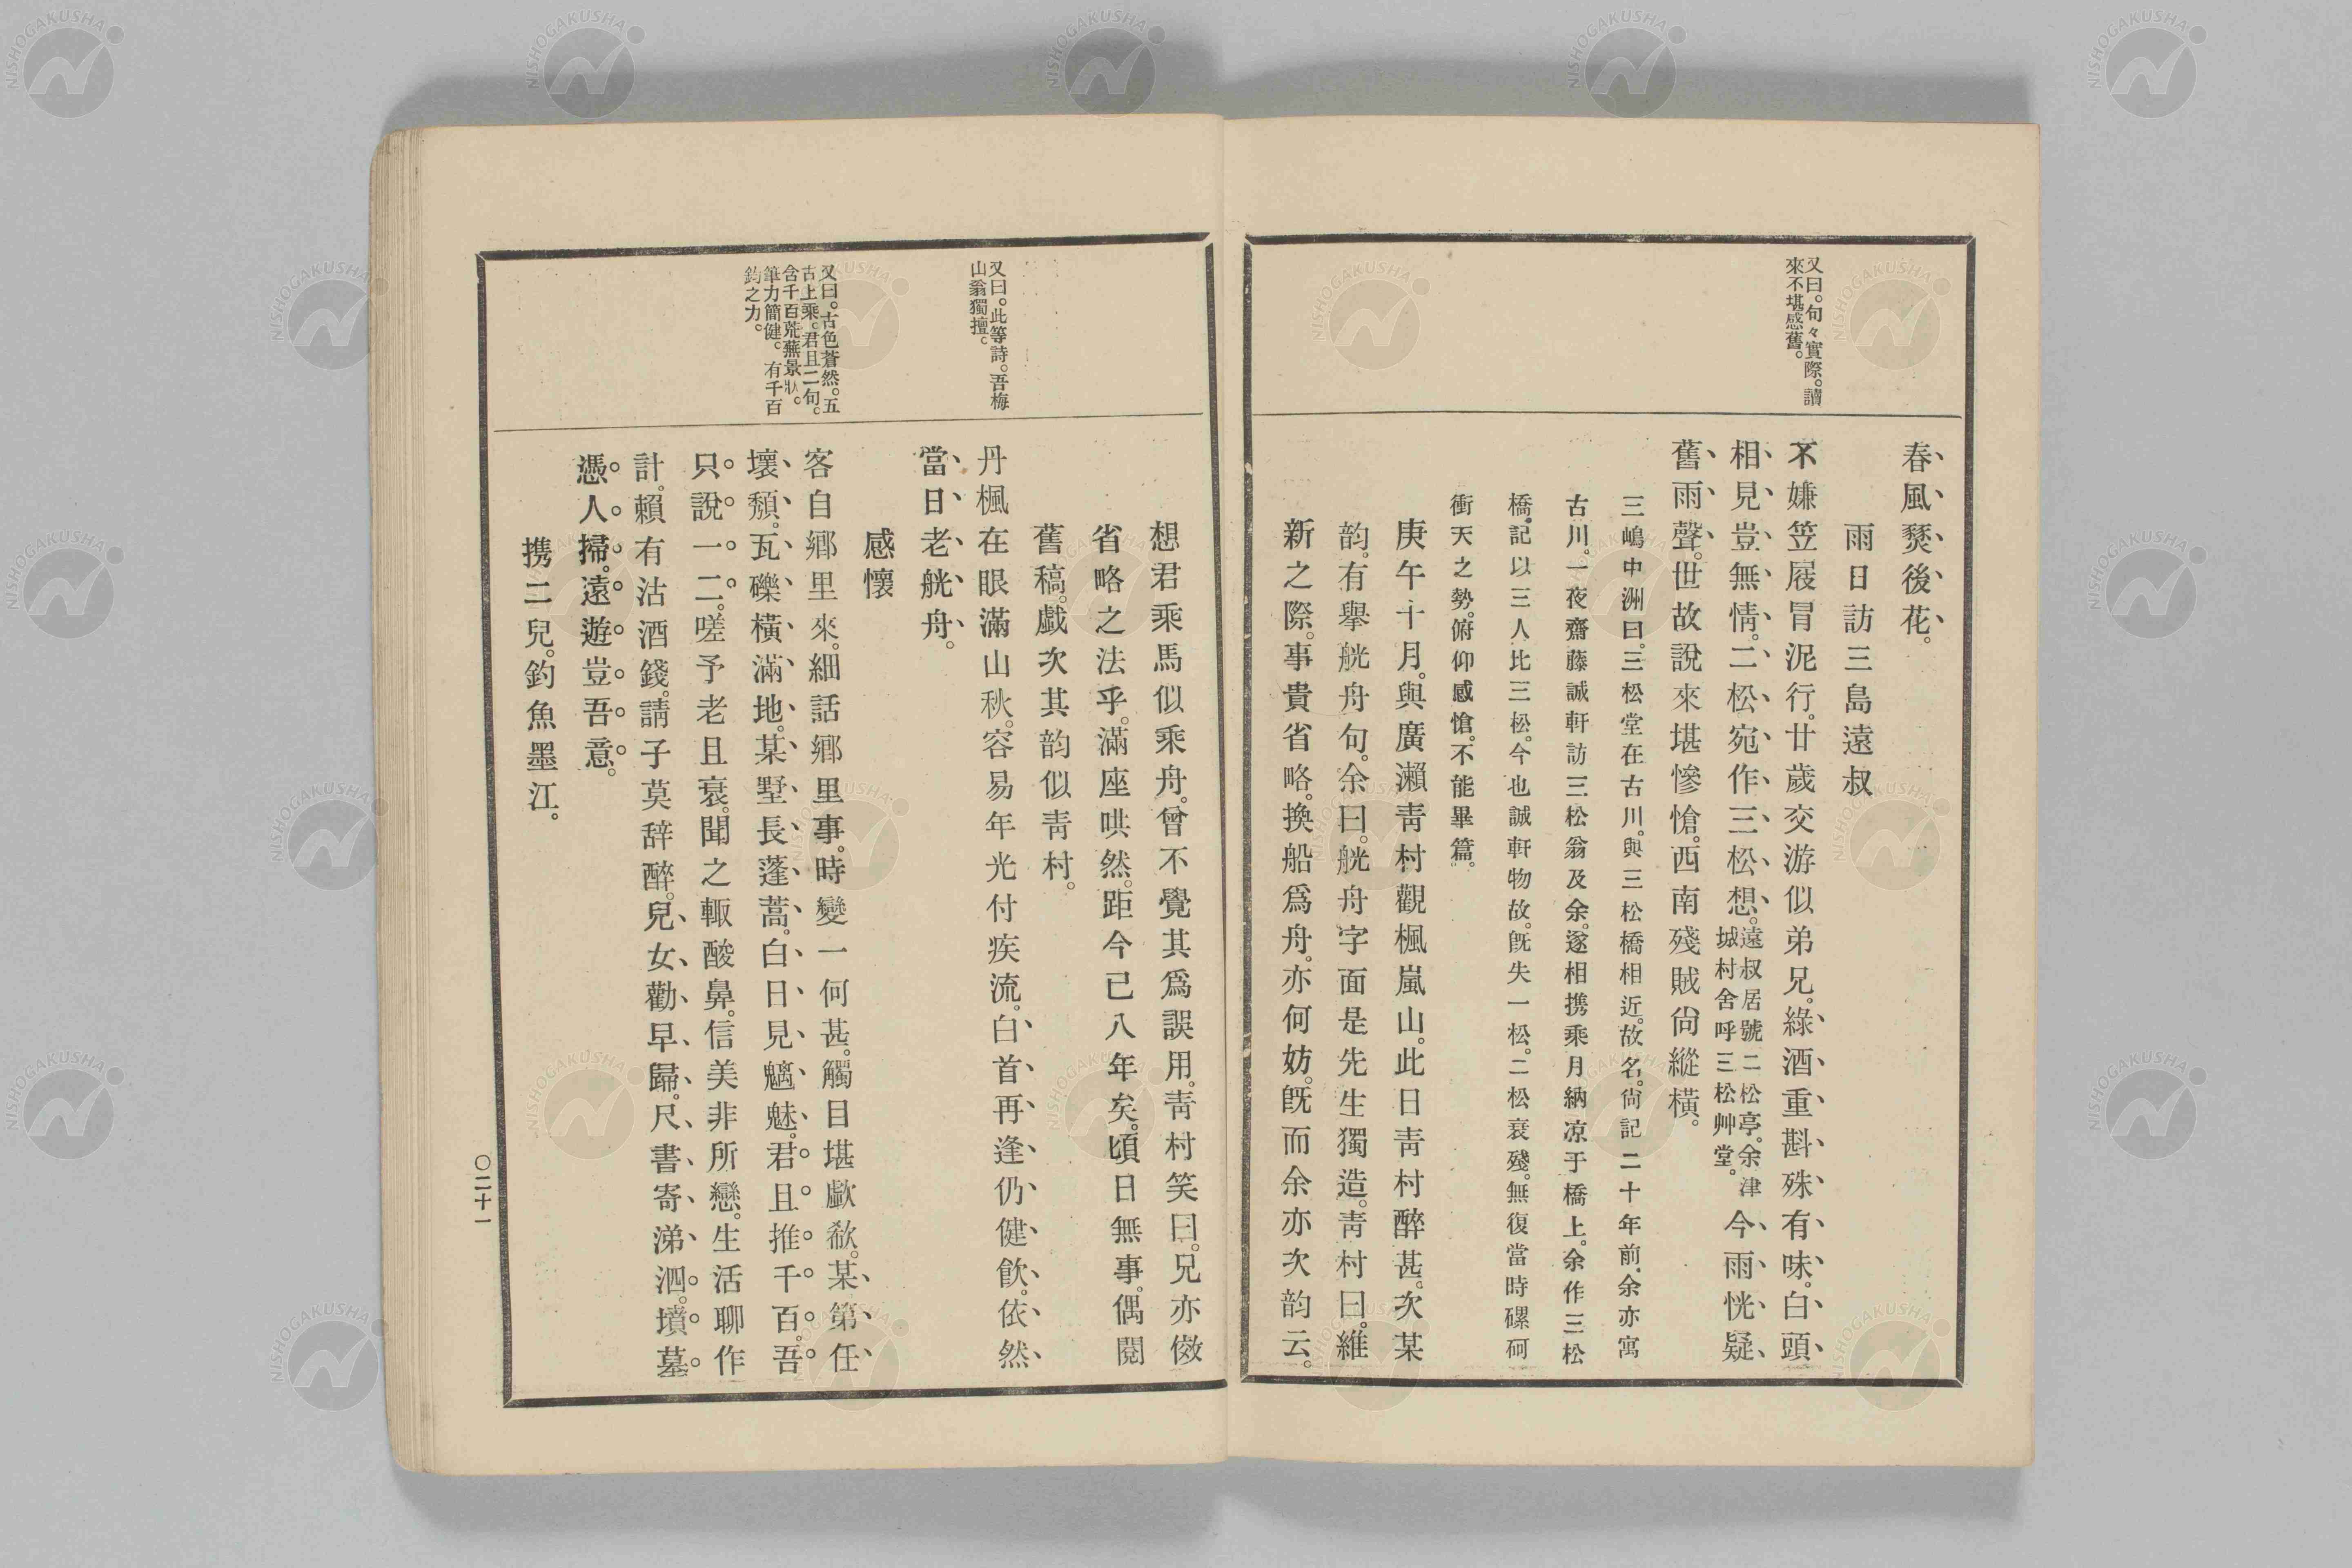 又曰。句々實際。讀
來不堪感舊。
春風燹後花。
雨日訪三島遠叔
不嫌笠屐冒泥行。廿歲交游似弟兄。綠酒重斟殊有味。白頭
相見豈無情。二松宛作三松想。遠叔居號二松亭。余津
城村舍呼三松艸堂。今雨恍疑
舊雨聲。世故說來堪慘愴。西南殘賊尙縱橫。
三嶋中洲曰。三松堂在古川。與三松橋相近。故名。尙記二十年前。余亦寓
古川。一夜齋藤誠軒訪三松翁及余。遂相携乘月納凉于橋上。余作三松
橋記。以三人比三松。今也誠軒物故。既失一松。二松衰殘。無復當時磥砢
衝天之勢。俯仰感愴。不能畢篇。
庚午十月。與廣瀨靑村觀楓嵐山。此日靑村醉甚。次某
韵。有擧觥舟句。余曰。觥舟字面是先生獨造。靑村曰。維
新之際。事貴省略。換船爲舟。亦何妨。既而余亦次韵云。
又曰。此等詩。吾梅
山翁獨擅。
又曰。古色蒼然。五
古上乘。君且二句。
含千百荒蕪景狀。
筆力簡健。有千百
鈞之力。
想君乘馬似乘舟。曾不覺其爲誤用。靑村笑曰。兄亦傚
省略之法乎。滿座哄然。距今已八年矣。頃日無事。偶閱
舊稿。戲次其韵似靑村。
丹楓在眼滿山秋。容易年光付疾流。白首再逢仍健飮。依然
當日老觥舟。
感懷
客自鄉里來。細話鄉里事。時變一何甚。觸目堪歔欷。某第任
壞頹。瓦礫橫滿地。某墅長蓬蒿。白日見魑魅。君且推千百。吾
只說一二。嗟予老且衰。聞之輙酸鼻。信美非所戀。生活聊作
計。賴有沽酒錢。請子莫辞醉。兒女勸早歸。尺書寄涕泗。墳墓
憑人掃。遠遊豈吾意。
携二兒。釣魚墨江。
〇二十一
NISHOGAKUSHA